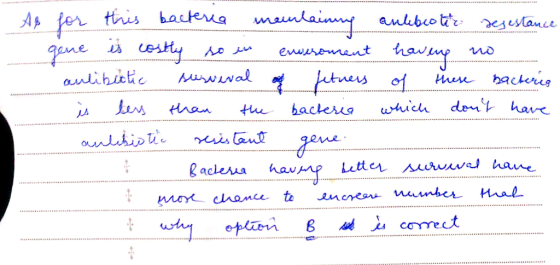 As for this bacteria maintaining antibiotic resistance
gene is costly so in enviroment having no
antibiotic survival of fitness of these bacteria
is less than the bacteria which don't have
antibiotic resistant gene.
Bacteria having better survival have
more chance to increase number that
why option B is correct